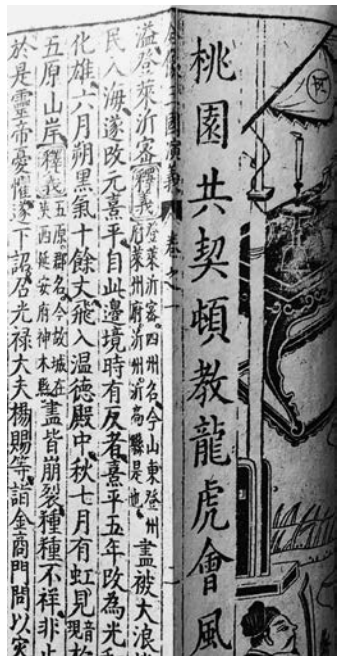 桃園共契頓教龍虎會風
三國演義 卷之一
溢登萊沂密釋義登萊沂密。四州名。今山東登州府萊州府沂州沂高縣是也。盡被大浪
民入海遂改元熹平自此邊境時有反者熹平五年改為光
化雄六月朔黑氣十餘丈飛入溫德殿中秋七月有虹見音現
五原山岸釋義五原。郡名。今故城在陝西延安府神木縣盡皆崩裂種種不祥非止
於是靈帝憂懼遂下詔召光祿大夫楊賜等詣金商門問以災